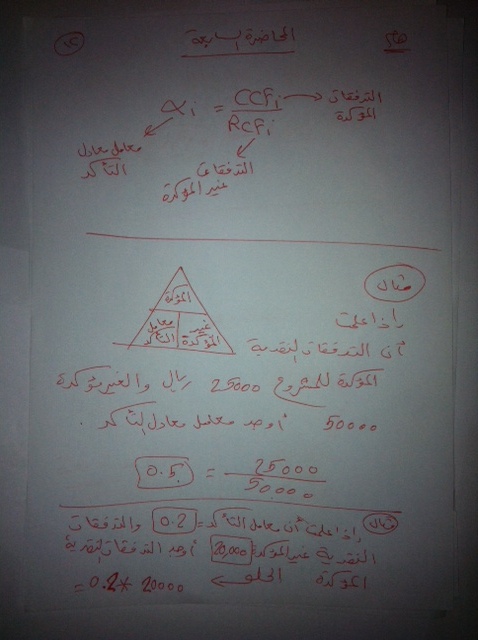 هام
المحاضرة السابعة
١٤
αi = CCFi / RCFi
التدفقات المؤكدة
معامل معادل التأكد
التدفقات غير المؤكدة
مثال
إذا علمت
أن التدفقات النقدية
المؤكدة
معامل معادل التأكد
غير المؤكدة
المؤكدة للمشروع 25000 ريال والغير مؤكدة
50000 أوجد معامل معادل التأكد .
0.5 = 25000 / 50.000
مثال إذا علمت أن معامل التأكد = 0.2 والتدفقات
النقدية غير المؤكدة 20,000 أوجد التدفقات النقدية
المؤكدة الحل 20000 * 0.2 =